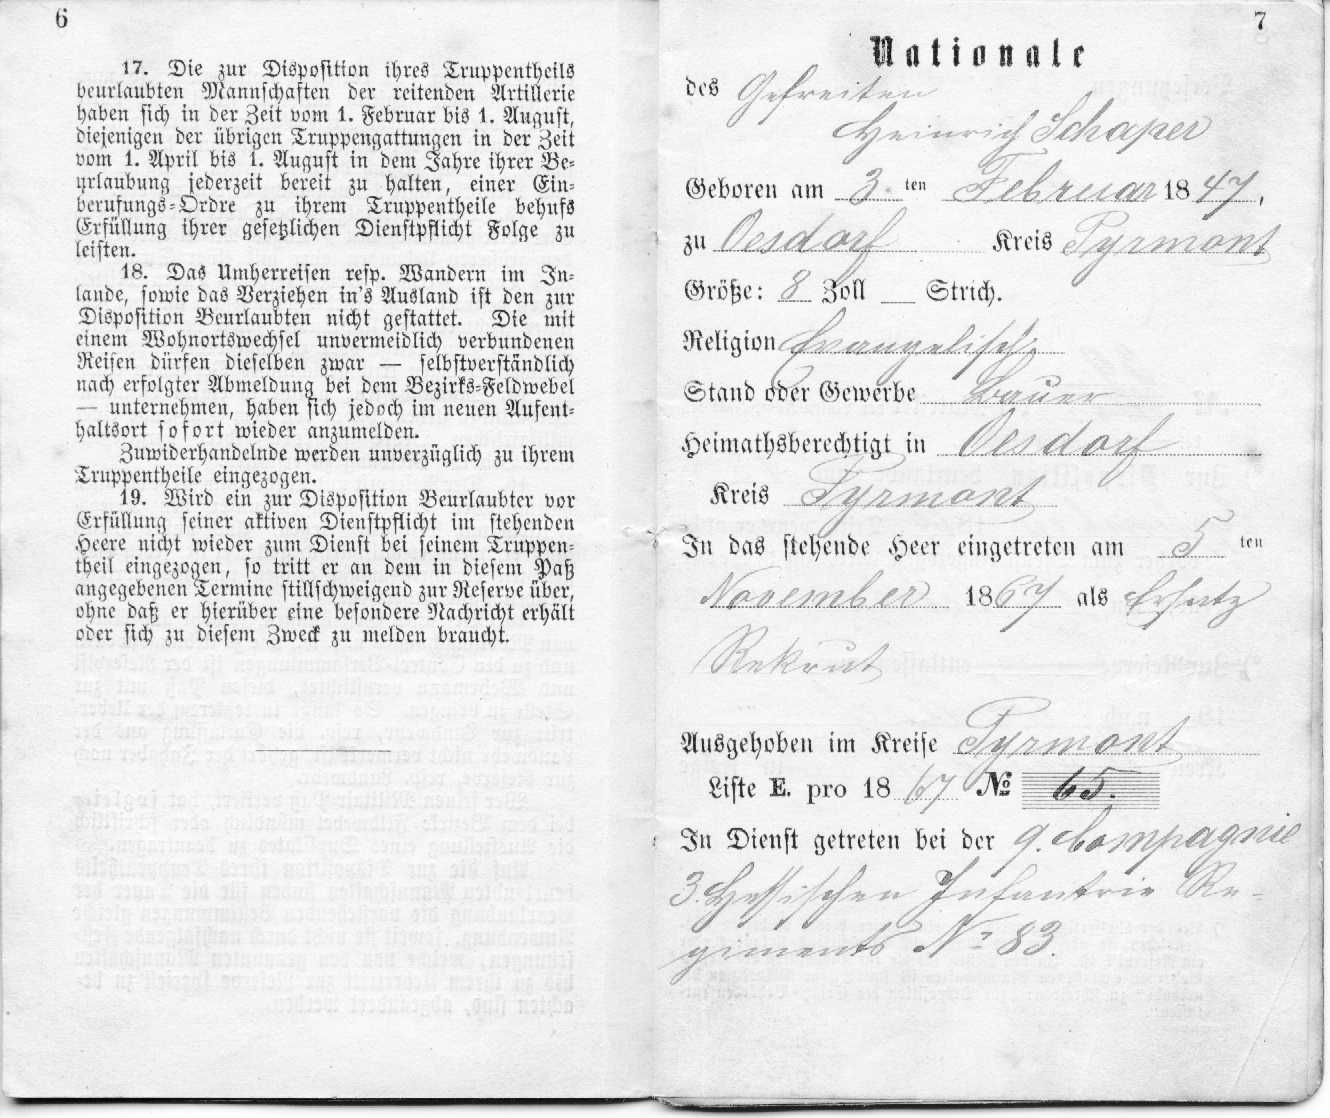 6
17. Die zur Disposition ihres Truppentheils
beurlaubten Mannschaften der reitenden Artillerie
haben sich in der Zeit vom 1. Februar bis 1. August,
diejenigen der übrigen Truppengattungen in der Zeit
vom 1. April bis 1. August in dem Jahre ihrer Be-
urlaubung jederzeit bereit zu halten, einer Ein-
berufungs-Ordre zu ihrem Truppentheile behufs
Erfüllung ihrer gesetzlichen Dienstpflicht Folge zu
leisten.
18. Das Umherreisen resp. Wandern im In-
lande, sowie das Verziehen in's Ausland ist den zur
Disposition Beurlaubten nicht gestattet. Die mit
einem Wohnortswechsel unvermeidlich verbundenen
Reisen dürfen dieselben zwar — selbstverständlich
nach erfolgter Abmeldung bei dem Bezirks-Feldwebel
— unternehmen, haben sich jedoch im neuen Aufent-
haltsort sofort wieder anzumelden.
Zuwiderhandelnde werden unverzüglich zu ihrem
Truppentheile eingezogen.
19. Wird ein zur Disposition Beurlaubter vor
Erfüllung seiner aktiven Dienstpflicht im stehenden
Heere nicht wieder zum Dienst bei seinem Truppen-
theil eingezogen, so tritt er an dem in diesem Paß
angegebenen Termine stillschweigend zur Reserve über,
ohne daß er hierüber eine besondere Nachricht erhält
oder sich zu diesem Zweck zu melden braucht.
7
Nationale
des Gefreiten
Heinrich Schaper
Geboren am 3. ten Februar 1847,
zu Oesdorf Kreis Pyrmont
Größe: 8 Zoll Strich.
Religion Evangelisch
Stand oder Gewerbe Bauer
Heimathsberechtigt in Oesdorf
Kreis Pyrmont
In das stehende Heer eingetreten am 5 ten
November 1867 als Ersatz
Rekrut
Ausgehoben im Kreise Pyrmont
Liste E. pro 1867 № 65.
In Dienst getreten bei der 9. Compagnie
3. Hessischen Infantrie Re-
giments Nr 83.